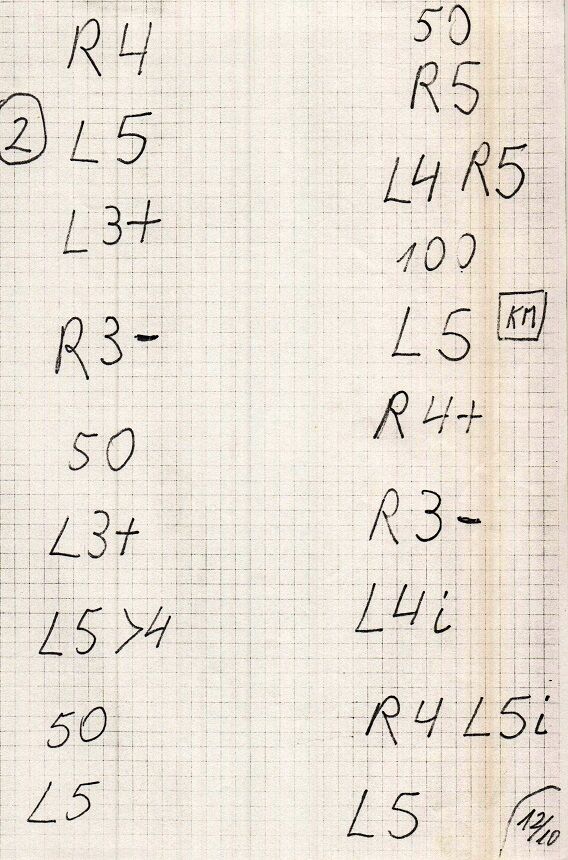 R4
② L5
L3+
R3-
50
L3+
L5 >4
50
L5
50
R5
L4 R5
100
L5 KM
R4+
R3-
L4i
R4 L5i
L5
12/10